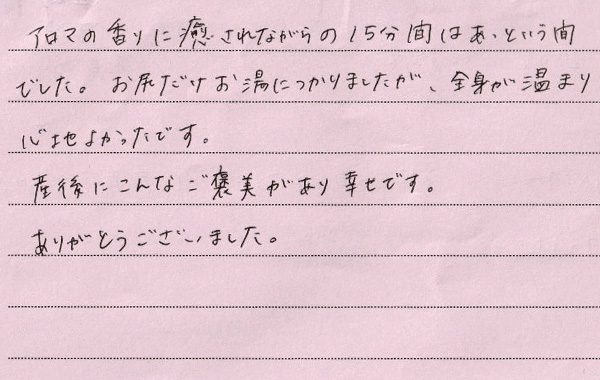 アロマの香りに癒されながらの15分間はあっという間
でした。お尻だけお湯につかりましたが、全身が温まり
心地よかったです。
産後にこんなご褒美があり幸せです。
ありがとうございました。